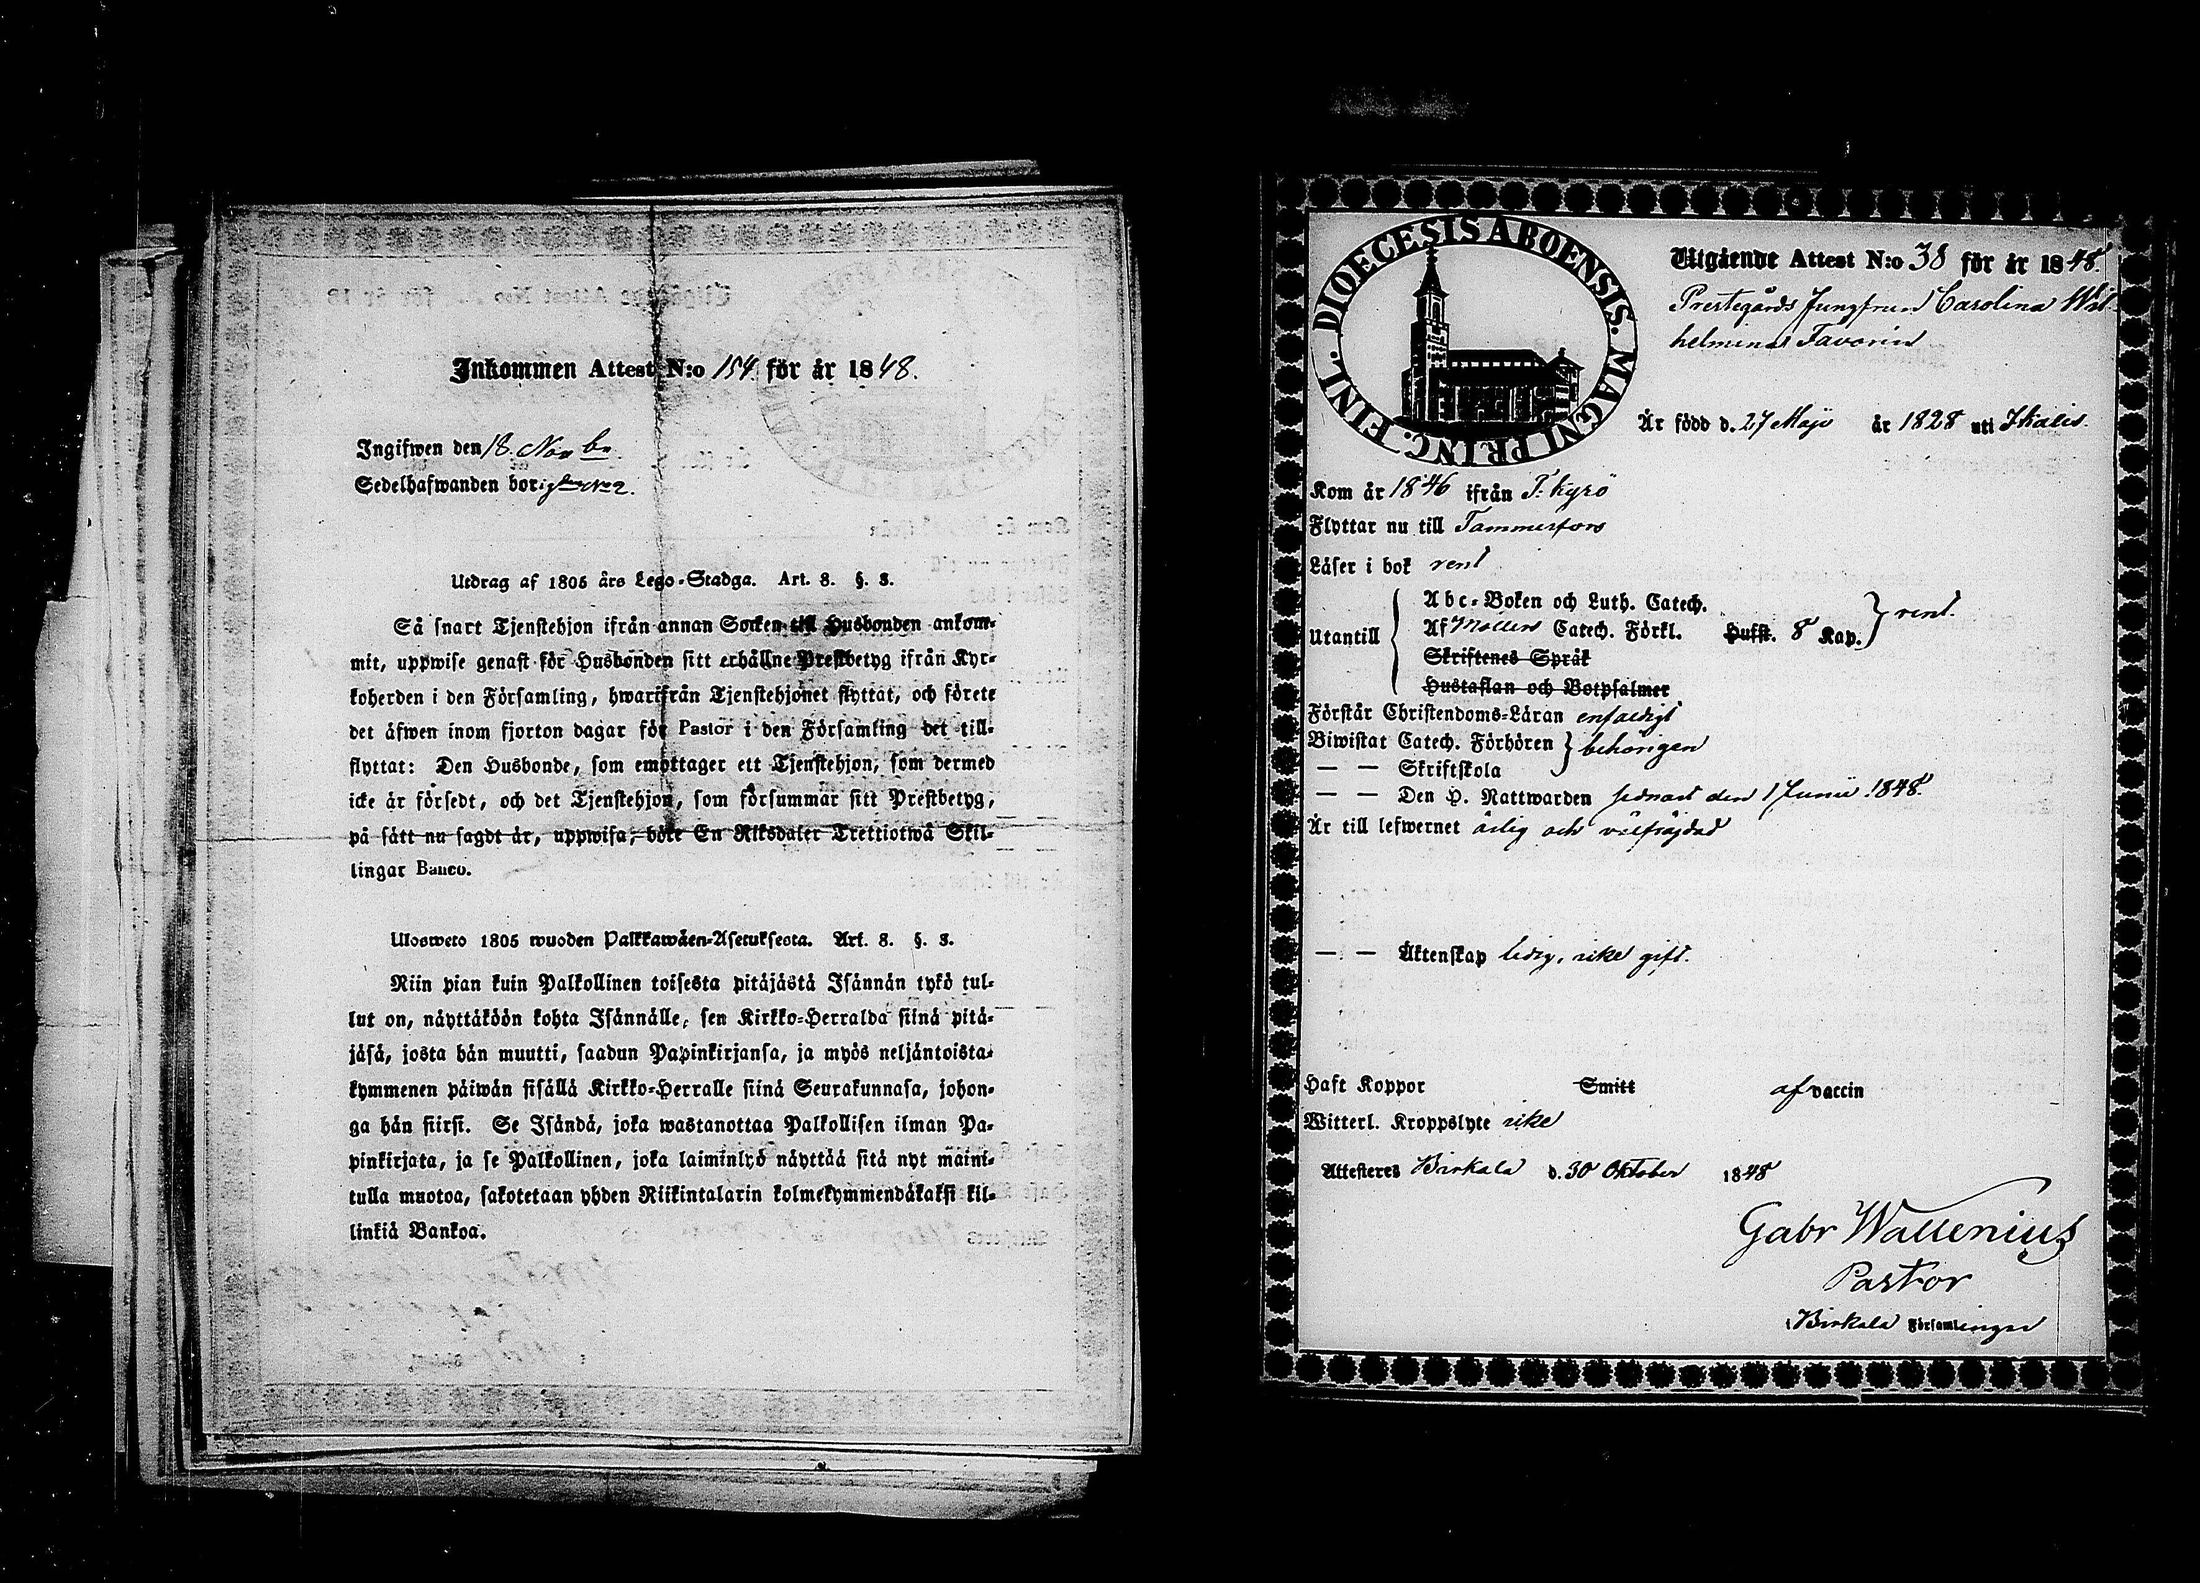 Inkommen Attest N:o 154. för år 1848.
Ingifwen den 18. Novbr.
Sedelhafwanden bor
Utdrag af 1805 års Lego-Stadga. Art. 8. §. 3.
Så snart Tjenstehjon ifrån annan Socken till Husbonden ankom-
mit, uppwise genast för Husbonden sitt erhållne Prestbetyg ifrån Kyr-
koherden i den Församling, hwarifrån Tjenstehjonet flyttat, och förete
det äfwen inom fjorton dagar för Pastor i den Församling det till-
flyttat: Den Husbonde, som emottager ett Tjenstehjon, som dermed
icke är försedt, och det Tjenstehjon, som försummar sitt Prestbetyg,
på sätt nu sagdt är, uppwisa, böte En Riksdaler Trettiotwå Skil-
lingar Banco.
Ulosweto 1805 wuoden Palkkawäen-Asetuksesta. Art. 8. §. 3.
Niin pian kuin Palkollinen toisesta pitäjästä Isännän tykö tul-
lut on, näyttäköön kohta Isännälle, sen Kirkko-Herralda siinä pitä-
jäsä, josta hän muutti, saadun Papinkirjansa, ja myös neljäntoista-
kymmenen päiwän sisällä Kirkko-Herralle siinä Seurakunnasa, johon-
ga hän siirsi. Se Isändä, joka wastanottaa Palkollisen ilman Pa-
pinkirjata, ja se Palkollinen, joka laiminlyö näyttää sitä nyt maini-
tulla muotoa, sakotetaan yhden Riikintalarin kolmekymmendäkaksi kil-
linkiä Bankoa.
DIOECESIS ABOENSIS. MAGNI PRINC. FINL.
Utgående Attest N:o 38 för år 1848.
Prestegårds Jungfrun Carolina Wil-
helmina Favorin
Är född d. 27 Maji år 1828 uti Ikalis.
Kom år 1846 ifrån T. kyrö
Flyttar nu till Tammerfors
Läser i bok rent
Utantill { Abc-Boken och Luth. Catech.
Af Möllers Catech. Förkl. Hufst. 8 Kap. } rent.
Skriftenes Språk
Hustaflan och Botpsalmer
Förstår Christendoms-Läran enfaldigt
Biwistat Catech. Förhören } behörigen
— — Skriftskola
— — Den H. Nattwarden sednast den 1 Junii 1848.
Är till lefwernet ärlig och välfräjdad
— — Äktenskap ledig, icke gift.
Haft Koppor Smitt af vaccin
Witterl. Kroppslyte icke
Attesteres Birkala d. 30 Oktober 1848
Gabr Wallenius
Pastor
i Birkala Församlingar